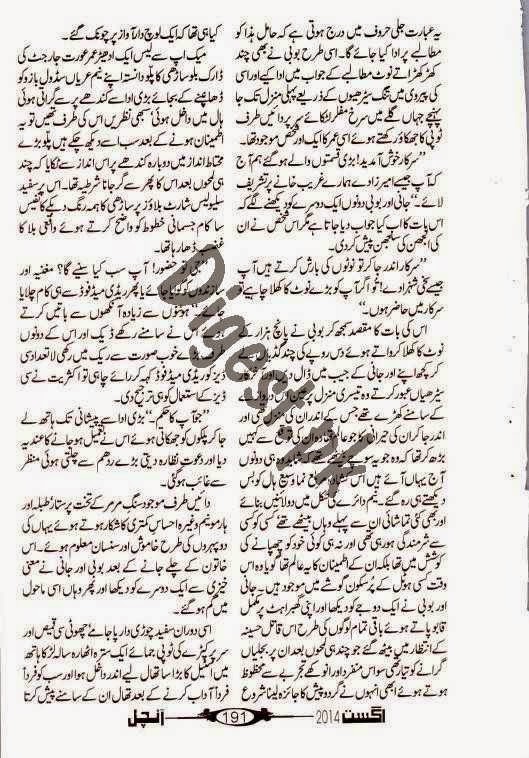 یہ عبارت جلی حروف میں درج ہوتی ہے کہ حامل ہذا کو
مطالبے پر ادا کیا جائے گا۔ اسی طرح بوبی نے بھی چند
کھڑکھڑاتے نوٹ مطالبے کے جواب میں دیے اور اسی
کی پیروی میں تنگ سیڑھیوں کے ذریعے پہلی منزل تک جا
پہنچے جہاں گلے میں سرخ مفلر لٹکائے سر پر دائیں طرف
ٹوپی کا جھکاؤ رکھے ہوئے اسی عمر کا ایک اور شخص موجود تھا۔
"سرکار خوش آمدید! بڑی قسمتوں والے ہو گئے ہم آج
کہ آپ جیسے امیر زادے ہمارے غریب خانے پر تشریف
لائے۔" جانی اور بوبی دونوں ایک دوسرے کو دیکھنے لگے کہ
اس بات کا اب کیا جواب دیا جاتا ہے مگر اس شخص نے ان
کی الجھن کی سلجھن پیش کر دی۔
"سرکار اندر جا کر تو نوٹوں کی بارش کرتے ہیں آپ
جیسے سخی شہزادے! تو اگر آپ کو بڑے نوٹ کا کھلا چاہیے تو
سرکار میں حاضر ہوں۔"
اس کی بات کا مقصد سمجھ کر بوبی نے پانچ ہزار کے
نوٹ کا کھلا کرواتے ہوئے دس روپے کی چند گڈیاں لے
کر کچھ اپنے اور جانی کے جیب میں ڈال دیں اور
سیڑھیاں عبور کرتے وہ تیسری منزل پر عین اس دروازے
کے سامنے کھڑے تھے جس کے اندر ان کی منزل تھی اور
اندر جا کر ان کی حیرانی کا جو عالم تھا وہ ان کی توقع سے بہیں
بڑھ کر تھا کہ وہ جو یہ سوچے بیٹھے تھے کہ شاید وہ ہی دونوں
آج یہاں آئے ہیں اس کشادہ نما وسیع ہال کو بس
دیکھتے ہی رہ گئے۔ نیم دائرے کی شکل میں دو لائنیں بنائے
اور بھی کئی تماشائی ان سے پہلے وہاں بیٹھے تھے کسی کو کسی
سے شرمندگی ہو رہی تھی اور نہ ہی کوئی خود کو چھپانے کی
کوشش میں تھا بلکہ ان کے اطمینان کا یہ عالم تھا گویا وہ اس
وقت کسی ہوٹل کے پرسکون گوشے میں موجود ہیں۔ جانی
اور بوبی نے ایک دوجے کو دیکھا اور اپنی گھبراہٹ پر مکمل
قابو پاتے ہوئے باقی تمام لوگوں کی طرح اس قاتل حسینہ
کے انتظار میں بیٹھ گئے جو چند ہی لمحوں بعد ان پر بجلیاں
گرانے کو تیار تھی سو اس منفرد اور انوکھے تجربے سے محظوظ
ہوتے ہوئے ابھی انہوں نے گرد و پیش کا جائزہ لینا شروع
کیا ہی تھا کہ ایک لوچ دار آواز پر چونک گئے۔
میک اپ سے لیس ایک ادھیڑ عمر عورت جارجٹ کی
ڈارک بلو ساڑھی کا پلو دانستہ اپنے نیم عریاں سڈول بازو کو
ڈھانپنے کے بجائے بڑی ادا سے کندھے پر سے گراتی ہوئی
ہال میں داخل ہوئی سبھی نظریں اس کی طرف تھیں تو یہ
اطمینان ہونے کے بعد سب اسے دیکھ چکے ہیں پلو بڑے
محتاط انداز میں دوبارہ کندھے پر اس انداز سے ٹکایا کہ چند
ہی لمحوں بعد اس کا پھر سے گر جانا شرطیہ تھا۔ اس پر سفید
سلیولیس شارٹ بلاؤز پر ساڑھی کا ہم رنگ دبکے کا نفیس
سا کام جسمانی خطوط کو واضح کرتے ہوئے واقعی بلا کا
غضب ڈھا رہا تھا۔
"جی تو حضور! آپ سب کیا سنیں گا؟ مغنیہ اور
سازندوں کو بلایا جائے یا پھر ریڈی میڈ فوڈ سے ہی کام چلایا
جائے۔" ہونٹوں سے زیادہ آنکھوں سے باتیں کرتے
ہوئے اس نے سامنے رکھے ڈیک اور اس کے دونوں
طرف بڑے خوب صورت سے ریک میں رکھی لا تعداد سی
ڈیز کو ریڈی میڈ فوڈ کہہ کر رائے چاہی تو اکثریت نے سی
ڈیز کے استعمال کو ہی ترجیح دی۔
"جو آپ کا حکم۔" بڑی ادا سے پیشانی تک ہاتھ لے
جا کر پلکوں کو جھکاتی ہوئے اس نے تعمیل ہو جانے کا عندیہ
دیا اور دعوت نظارہ دیتی بڑے ردھم سے چلتی ہوئی منظر
سے غائب ہو گئی۔
دائیں طرف موجود سنگ مرمر کے تخت پر ستار، طبلہ اور
ہارمونیم وغیرہ احساس کمتری کا شکار ہوتے ہوئے یہاں کی
دوپہروں کی طرح خاموش اور سنسان معلوم ہوئے۔ اس
خاتون کے چلے جانے کے بعد بوبی اور جانی نے معنی
خیزی سے ایک دوسرے کو دیکھا اور پھر وہاں اسی ماحول
میں گم ہو گئے۔
اسی دوران سفید چوڑی دار پاجامے، چھوٹی سی قمیص اور
سر پر کپڑے کی ٹوپی جمائے ایک سترہ اٹھارہ سالہ لڑکا ہاتھ
میں اسٹیل کا بڑا سا تھال لیے اندر داخل ہوا اور سب کو فرداً
فرداً آداب کرنے کے بعد تھال ان کے سامنے پیش کرتا
اگست 2014
191
آنچل
Digest.pk